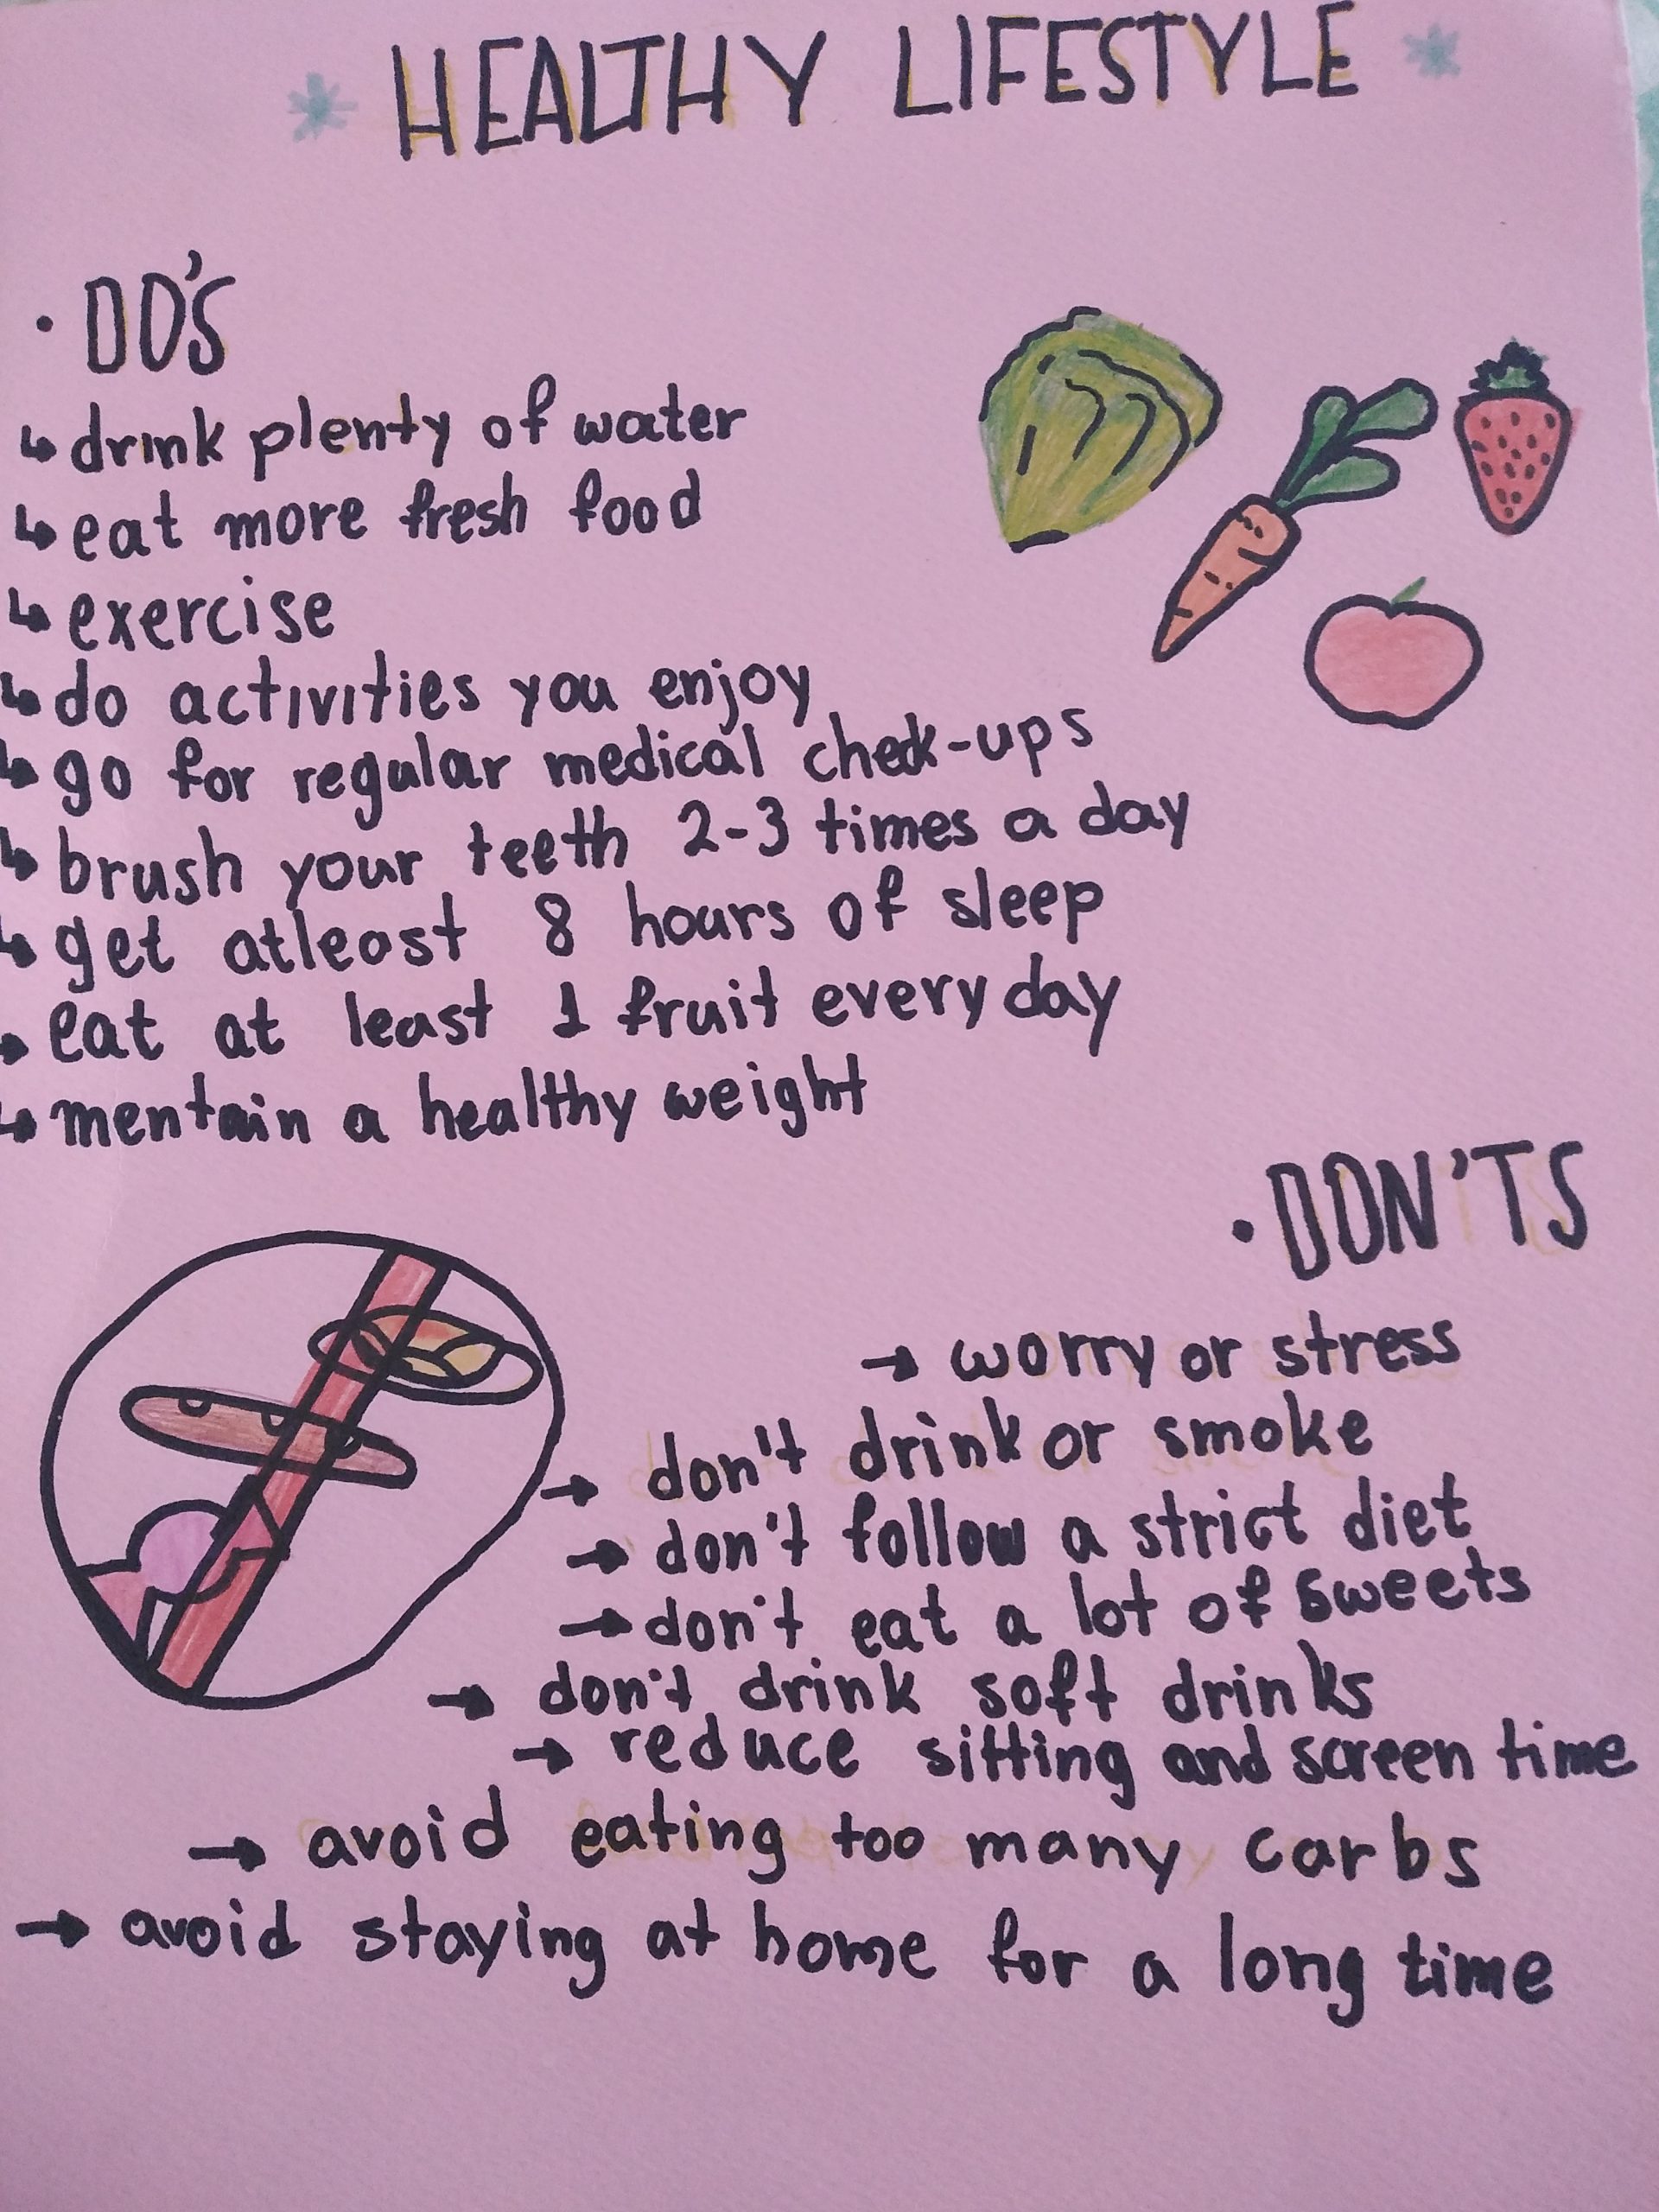 HEALTHY LIFESTYLE
• DO'S
↳ drink plenty of water
↳ eat more fresh food
↳ exercise
↳ do activities you enjoy
↳ go for regular medical check-ups
↳ brush your teeth 2-3 times a day
↳ get atleast 8 hours of sleep
↳ eat at least 1 fruit every day
↳ mentain a healthy weight
• DON'TS
→ worry or stress
→ don't drink or smoke
→ don't follow a strict diet
→ don't eat a lot of sweets
→ don't drink soft drinks
→ reduce sitting and screen time
→ avoid eating too many carbs
→ avoid staying at home for a long time